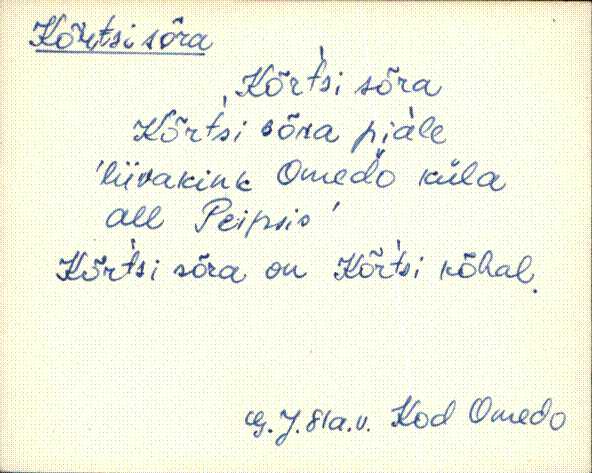 Kõrtsi sõra
Kõrt̀si sõra
Kõrt̀si sõra piàle
'liivakink Omedo küla
all Peipsis'
Kõrt̀si sõra on Kõrt̀si kõhal.
J. 81a.v. Kod Omedo